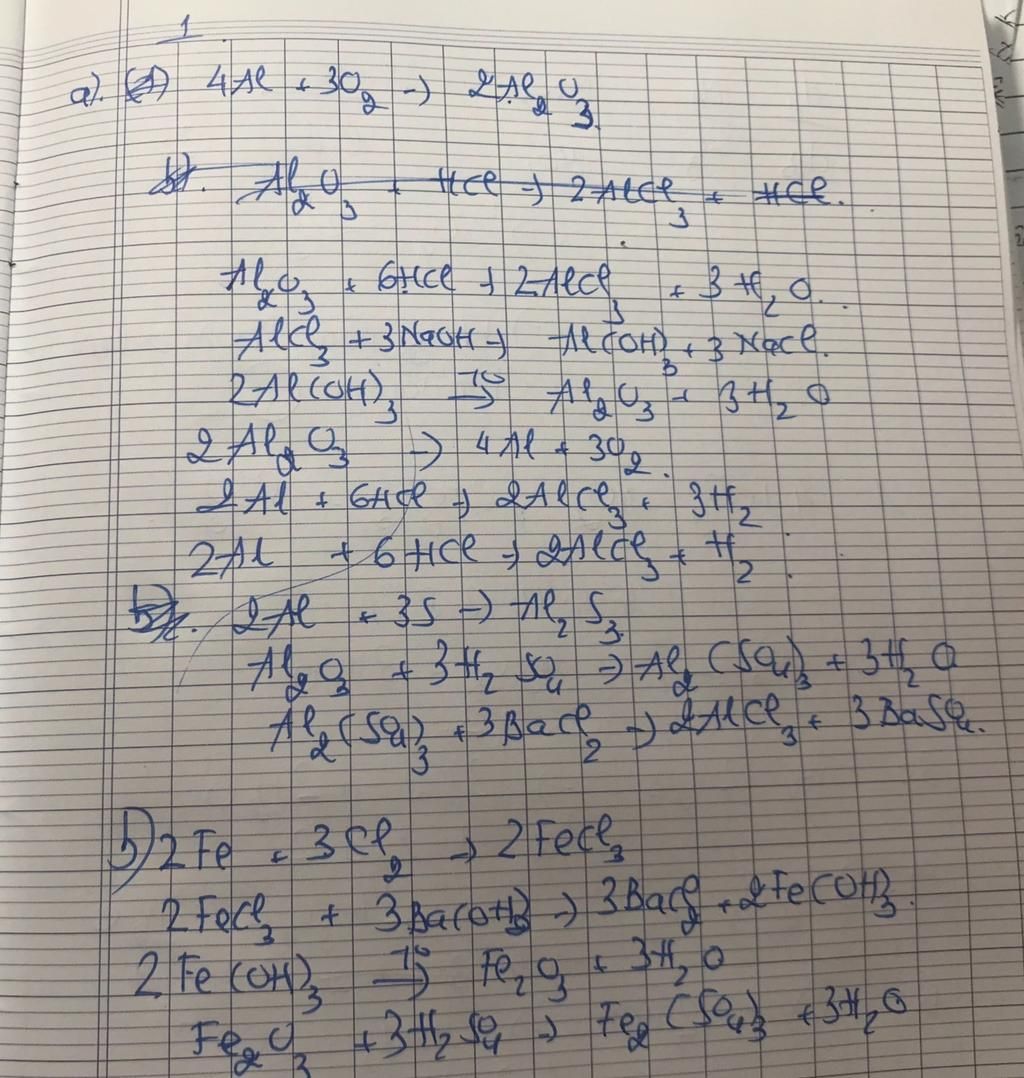 1
a). (1) 4Al + 3O₂ → 2Al₂O₃.
Al₂O₃ + HCl → 2AlCl₃ + HCl.
Al₂O₃ + 6HCl → 2AlCl₃ + 3H₂O.
AlCl₃ + 3NaOH → Al(OH)₃ + 3NaCl.
2Al(OH)₃ →(t⁰) Al₂O₃ + 3H₂O
2Al₂O₃ → 4Al + 3O₂.
2Al + 6HCl → 2AlCl₃ + 3H₂
2Al + 6HCl → 2AlCl₃ + H₂.
2Al + 3S → Al₂S₃.
Al₂O₃ + 3H₂SO₄ → Al₂(SO₄)₃ + 3H₂O
Al₂(SO₄)₃ + 3BaCl₂ → 2AlCl₃ + 3BaSO₄.
b) 2Fe + 3Cl₂ → 2FeCl₃
2FeCl₃ + 3Ba(OH)₂ → 3BaCl₂ + 2Fe(OH)₃.
2Fe(OH)₃ →(t⁰) Fe₂O₃ + 3H₂O
Fe₂O₃ + 3H₂SO₄ → Fe₂(SO₄)₃ + 3H₂O